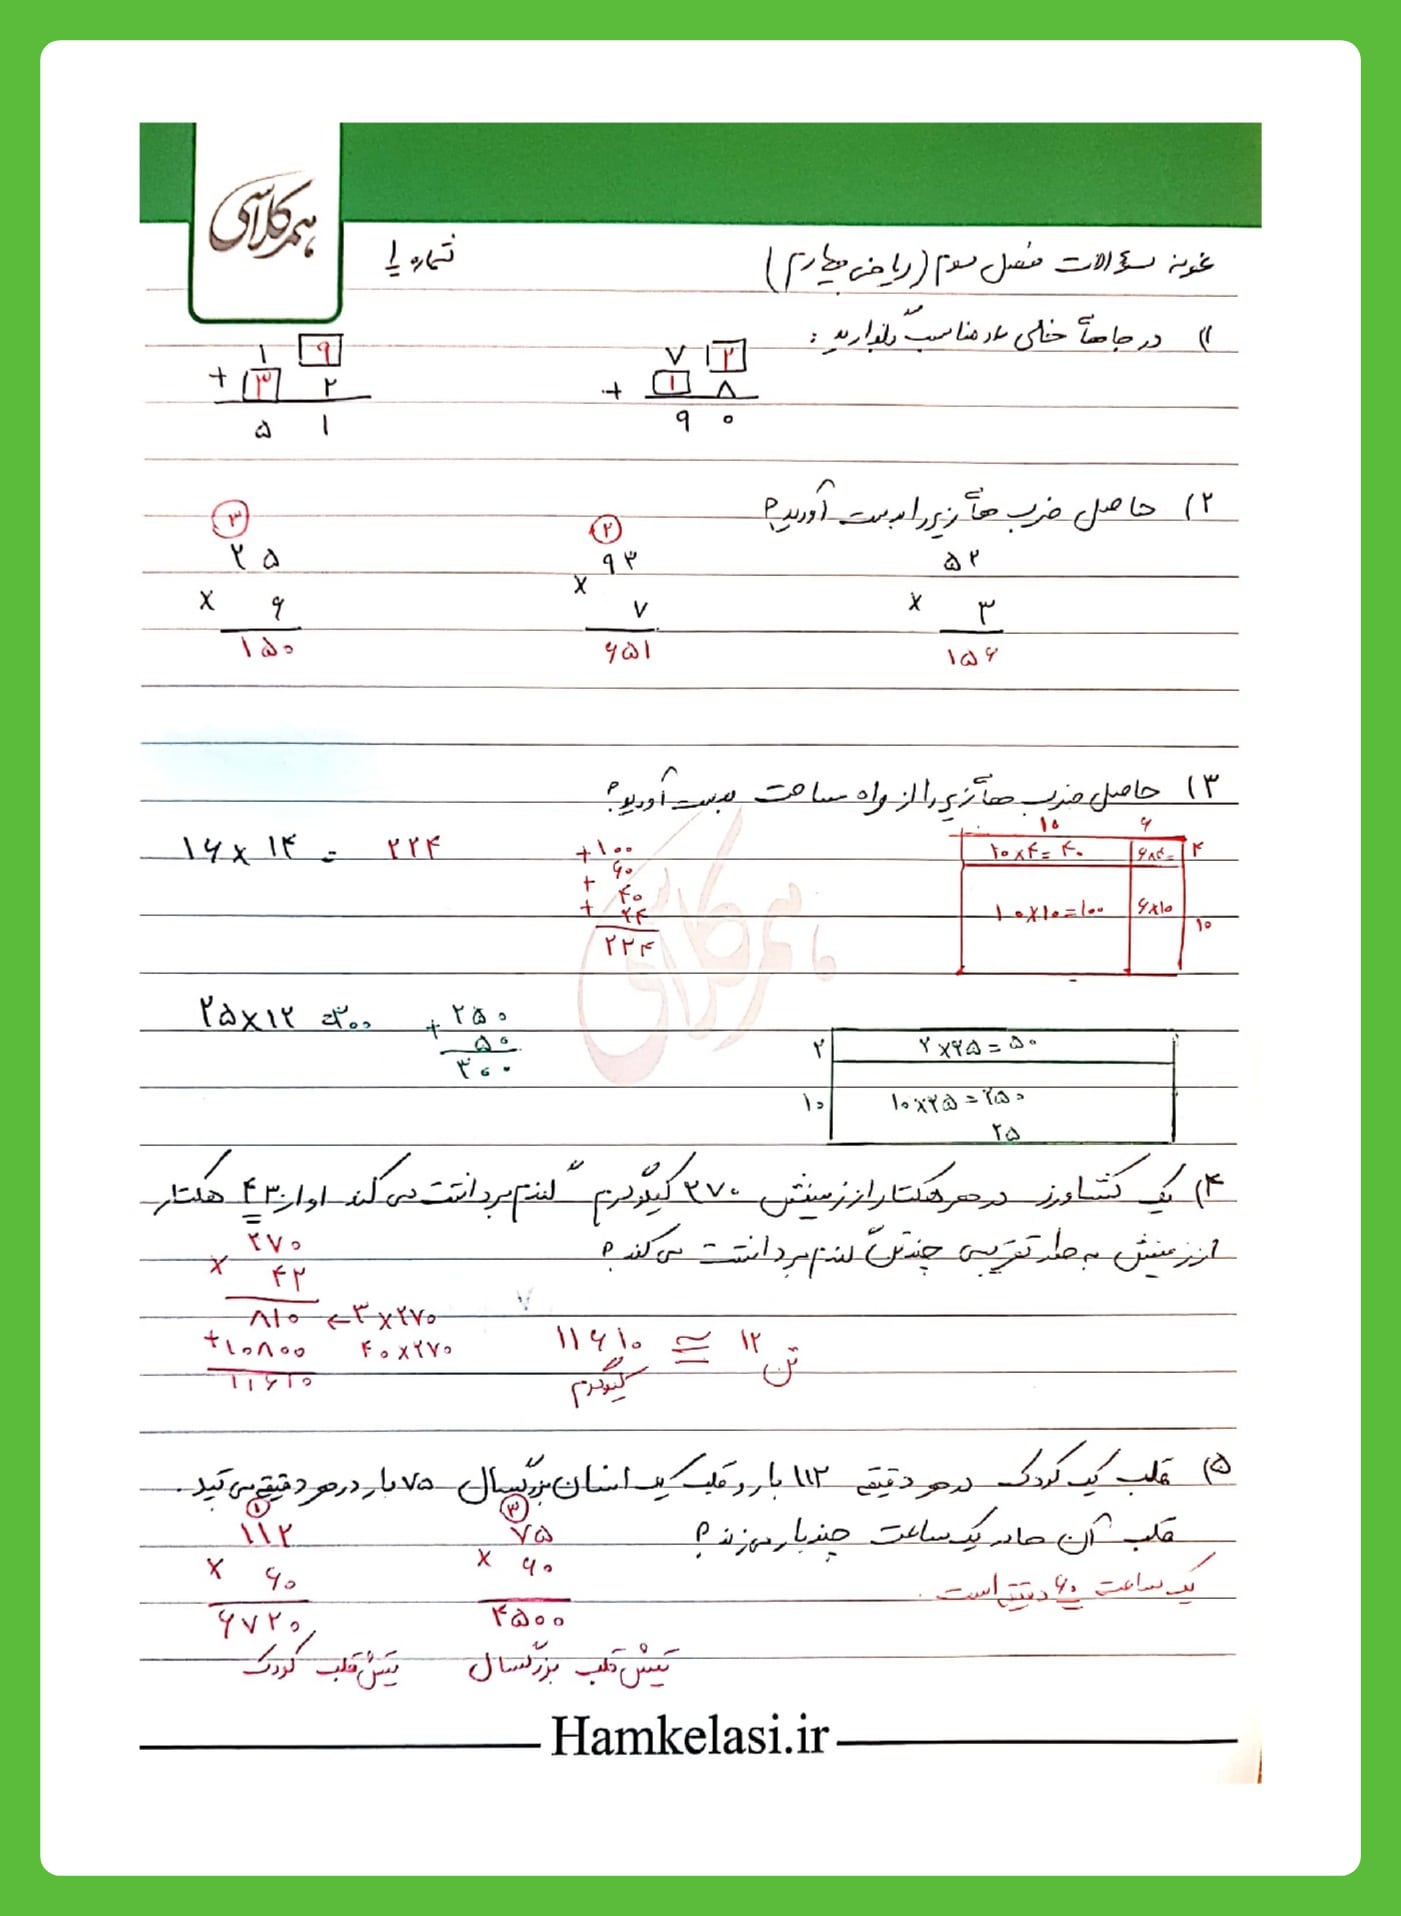 همکلاسی
نمونه سؤالات فصل سوم (ریاضی چهارم) شماره ۱
۱) در جاهای خالی عدد مناسب بگذارید:
۷ ۲
+ ۱ ۸
۹ ۰
۱ ۹
+ ۳ ۲
۵ ۱
۲) حاصل ضرب های زیر را بدست آورید؟
۵۲
× ۳
۱۵۶
۲
۹۳
× ۷
۶۵۱
۳
۲۵
× ۶
۱۵۰
۳) حاصل ضرب های زیر را از راه مساحت بدست آورید؟
۱۶ × ۱۴ = ۲۲۴
+۱۰۰
۶۰
+ ۴۰
+ ۲۴
۲۲۴
۱۰ ۶
۱۰×۴=۴۰ ۶×۴= ۴
۱۰×۱۰=۱۰۰ ۶×۱۰ ۱۰
۲۵×۱۲ =۳۰۰
+ ۲۵۰
۵۰
۳۰۰
۲ ۲×۲۵=۵۰
۱۰ ۱۰×۲۵=۲۵۰
۲۵
۴) یک کشاورز در هر هکتار از زمینش ۲۷۰ کیلوگرم گندم برداشت می کند او از ۴۳ هکتار
از زمینش به طور تقریبی چند تن گندم برداشت می کند؟
۲۷۰
× ۴۳
۸۱۰ ← ۳×۲۷۰
+۱۰۸۰۰ ۴۰×۲۷۰
۱۱۶۱۰
۱۱۶۱۰ ≅ ۱۲
کیلوگرم تن
۵) قلب یک کودک در هر دقیقه ۱۱۲ بار و قلب یک انسان بزرگسال ۷۵ بار در هر دقیقه می تپد.
قلب آن ها در یک ساعت چند بار می زند؟
یک ساعت ۶۰ دقیقه است.
۳
۷۵
× ۶۰
۴۵۰۰
تپش قلب بزرگسال
۱
۱۱۲
× ۶۰
۶۷۲۰
تپش قلب کودک
Hamkelasi.ir